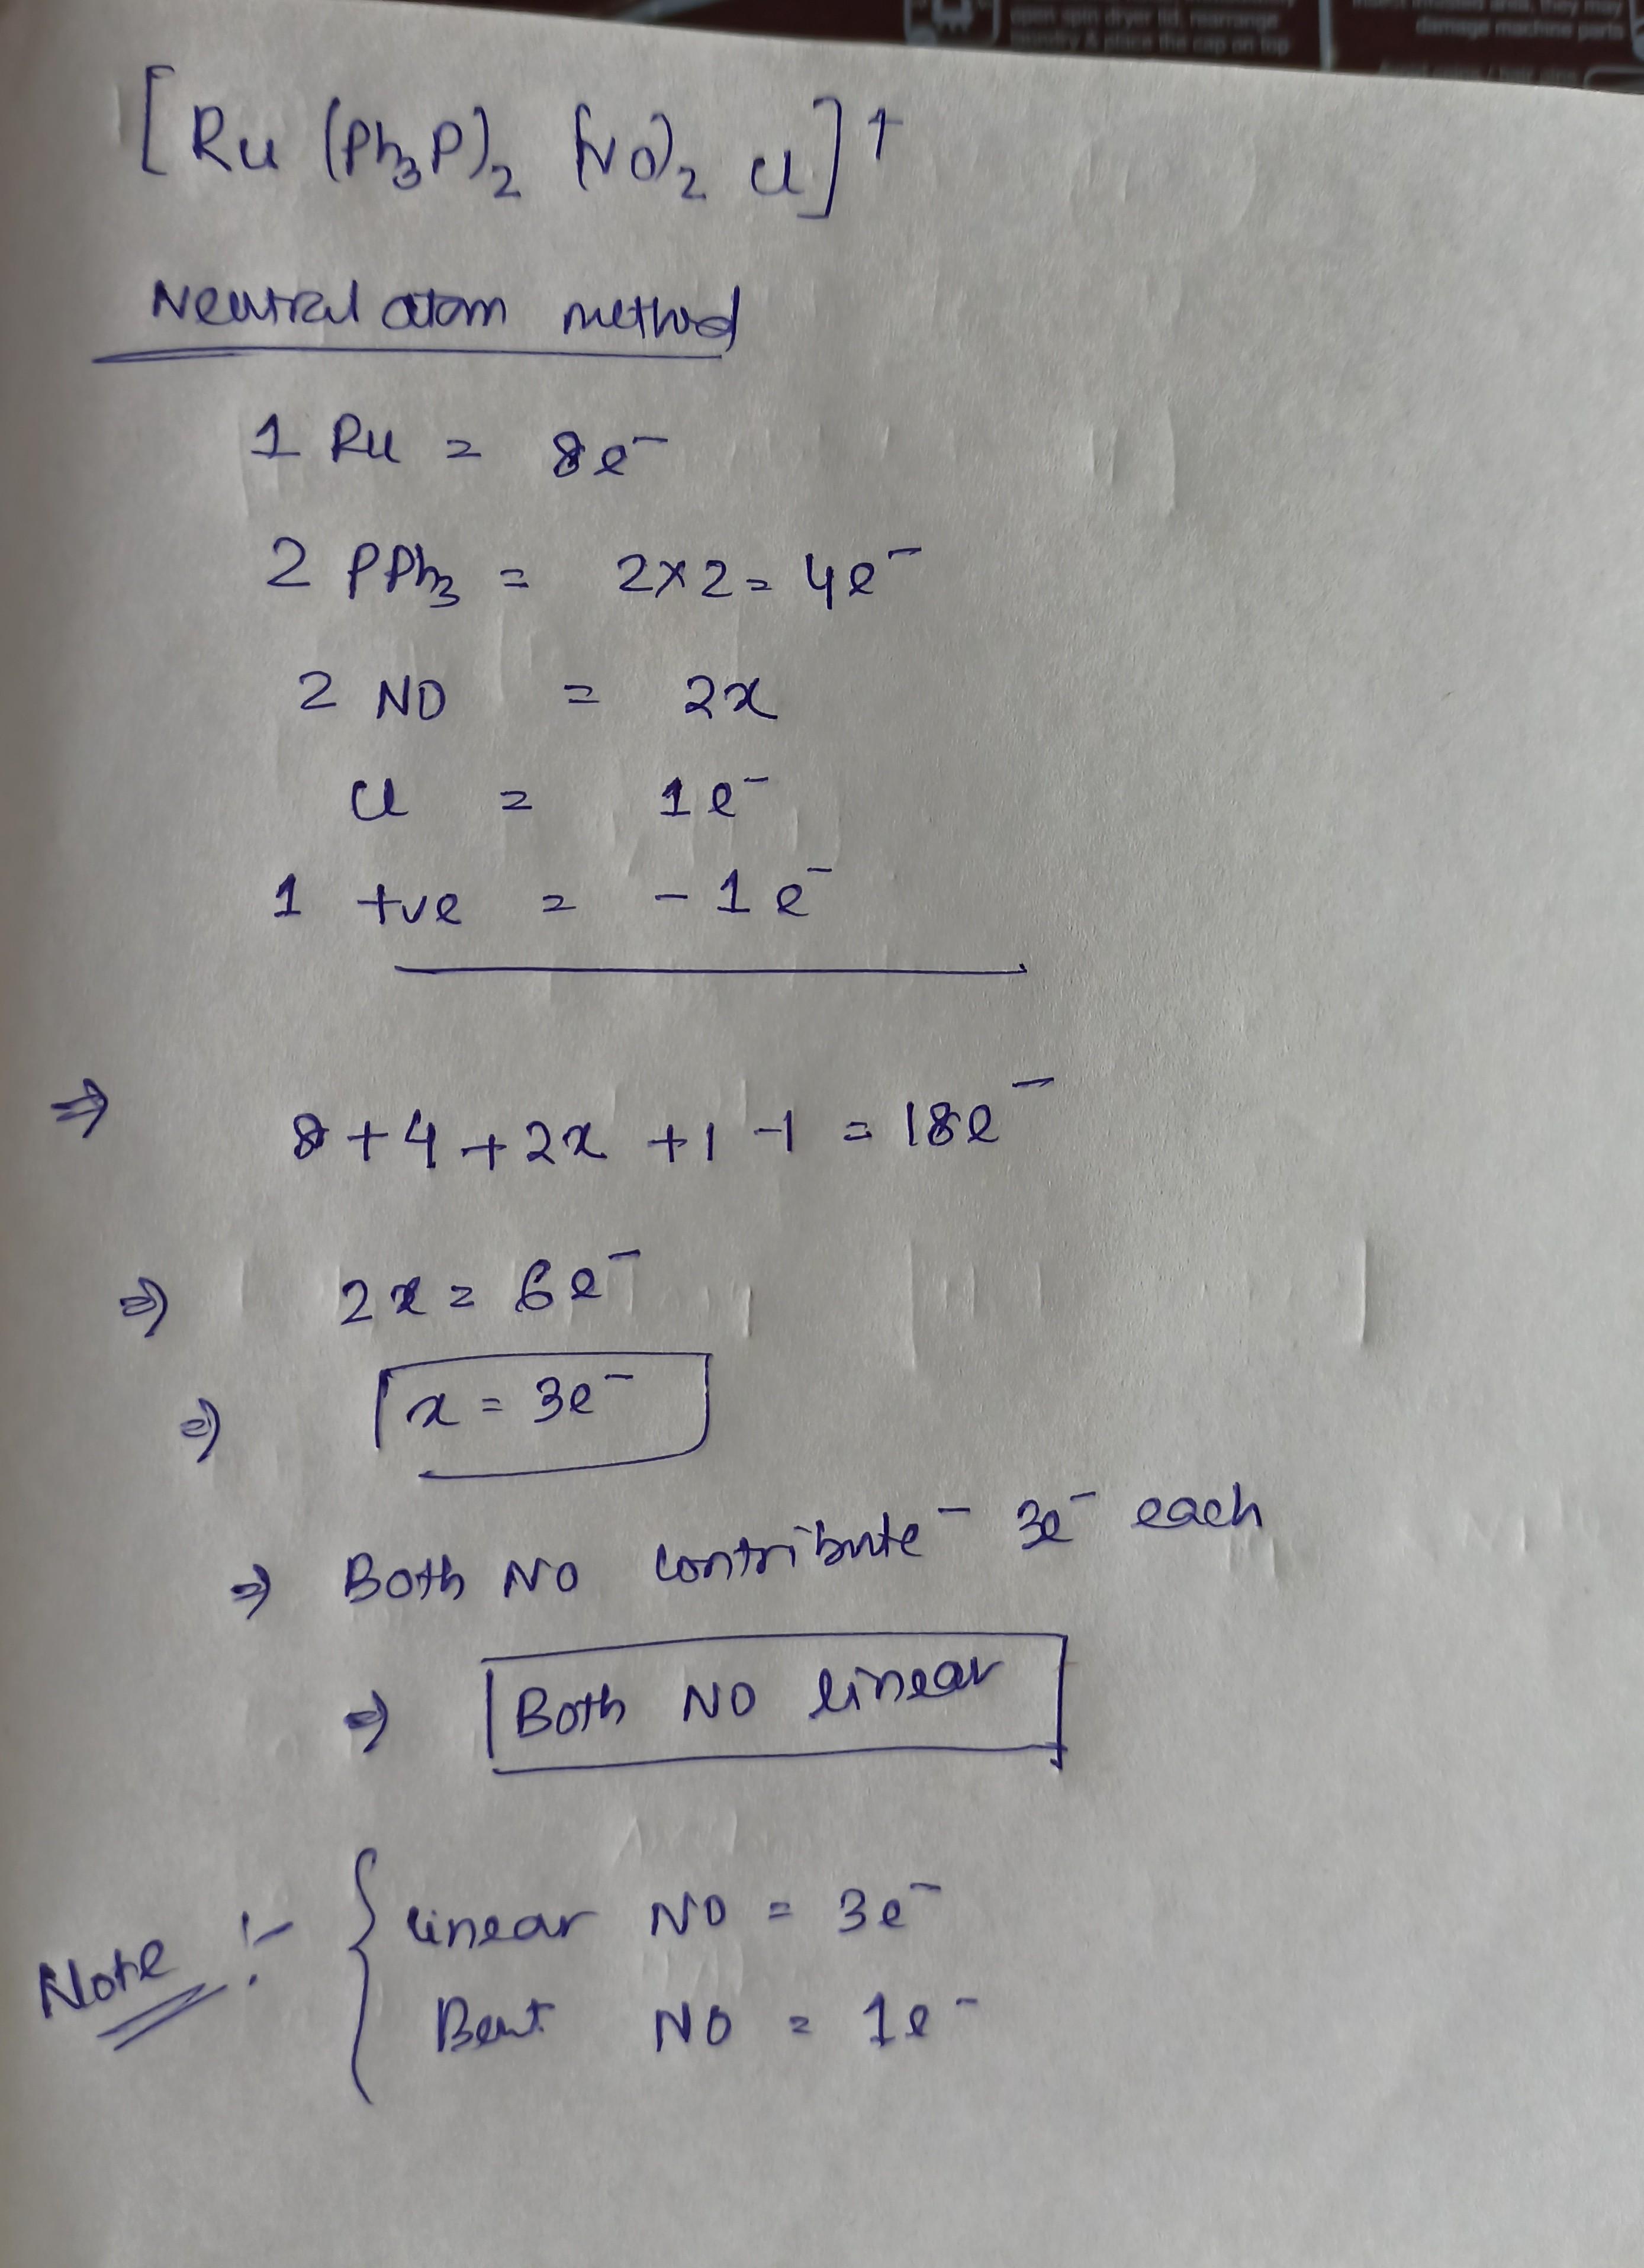 open spin dryer lid, rearrange
laundry & place the cap on top
damage machine parts
[Ru (Ph₃P)₂ (NO)₂ Cl]⁺
Neutral atom method
1 Ru = 8e⁻
2 PPh₃ = 2×2 = 4e⁻
2 NO = 2x
Cl = 1e⁻
1 +ve = -1e⁻
⇒ 8+4+2x+1-1 = 18e⁻
⇒ 2x = 6e⁻
⇒ x = 3e⁻
⇒ Both NO contribute - 3e⁻ each
⇒ Both NO linear
Note :- { linear NO = 3e⁻
Bent NO = 1e⁻